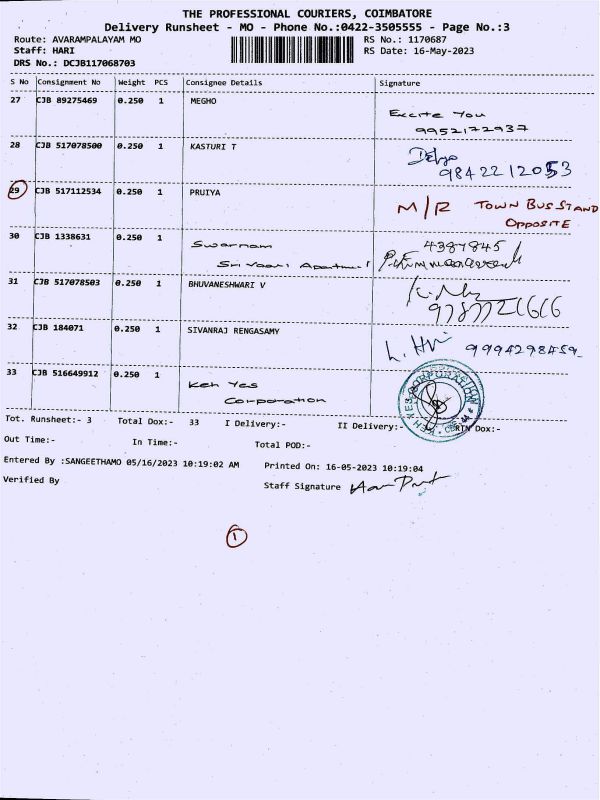 THE PROFESSIONAL COURIERS, COIMBATORE
Delivery Runsheet - MO - Phone No.:0422-3505555 - Page No.:3
Route: AVARAMPALAYAM MO RS No.: 1170687
Staff: HARI RS Date: 16-May-2023
DRS No.: DCJB117068703
S No Consignment No Weight PCS Consignee Details Signature
27 CJB 89275469 0.250 1 MEGHO
Excite You
9952172937
28 CJB 517078500 0.250 1 KASTURI T
9842212053
29 CJB 517112534 0.250 1 PRUIYA
M/R TOWN BUS STAND
OPPOSITE
30 CJB 1338631 0.250 1 Swarnam 4387845
Sri Vaari Apartment
31 CJB 517078503 0.250 1 BHUVANESHWARI V
32 CJB 184071 0.250 1 SIVANRAJ RENGASAMY
9994298459
33 CJB 516649912 0.250 1 Keh Yes
Corporation
Tot. Runsheet:- 3 Total Dox:- 33 I Delivery:- II Delivery:- RTN Dox:-
Out Time:- In Time:- Total POD:-
Entered By :SANGEETHAMO 05/16/2023 10:19:02 AM Printed On: 16-05-2023 10:19:04
Verified By Staff Signature
1